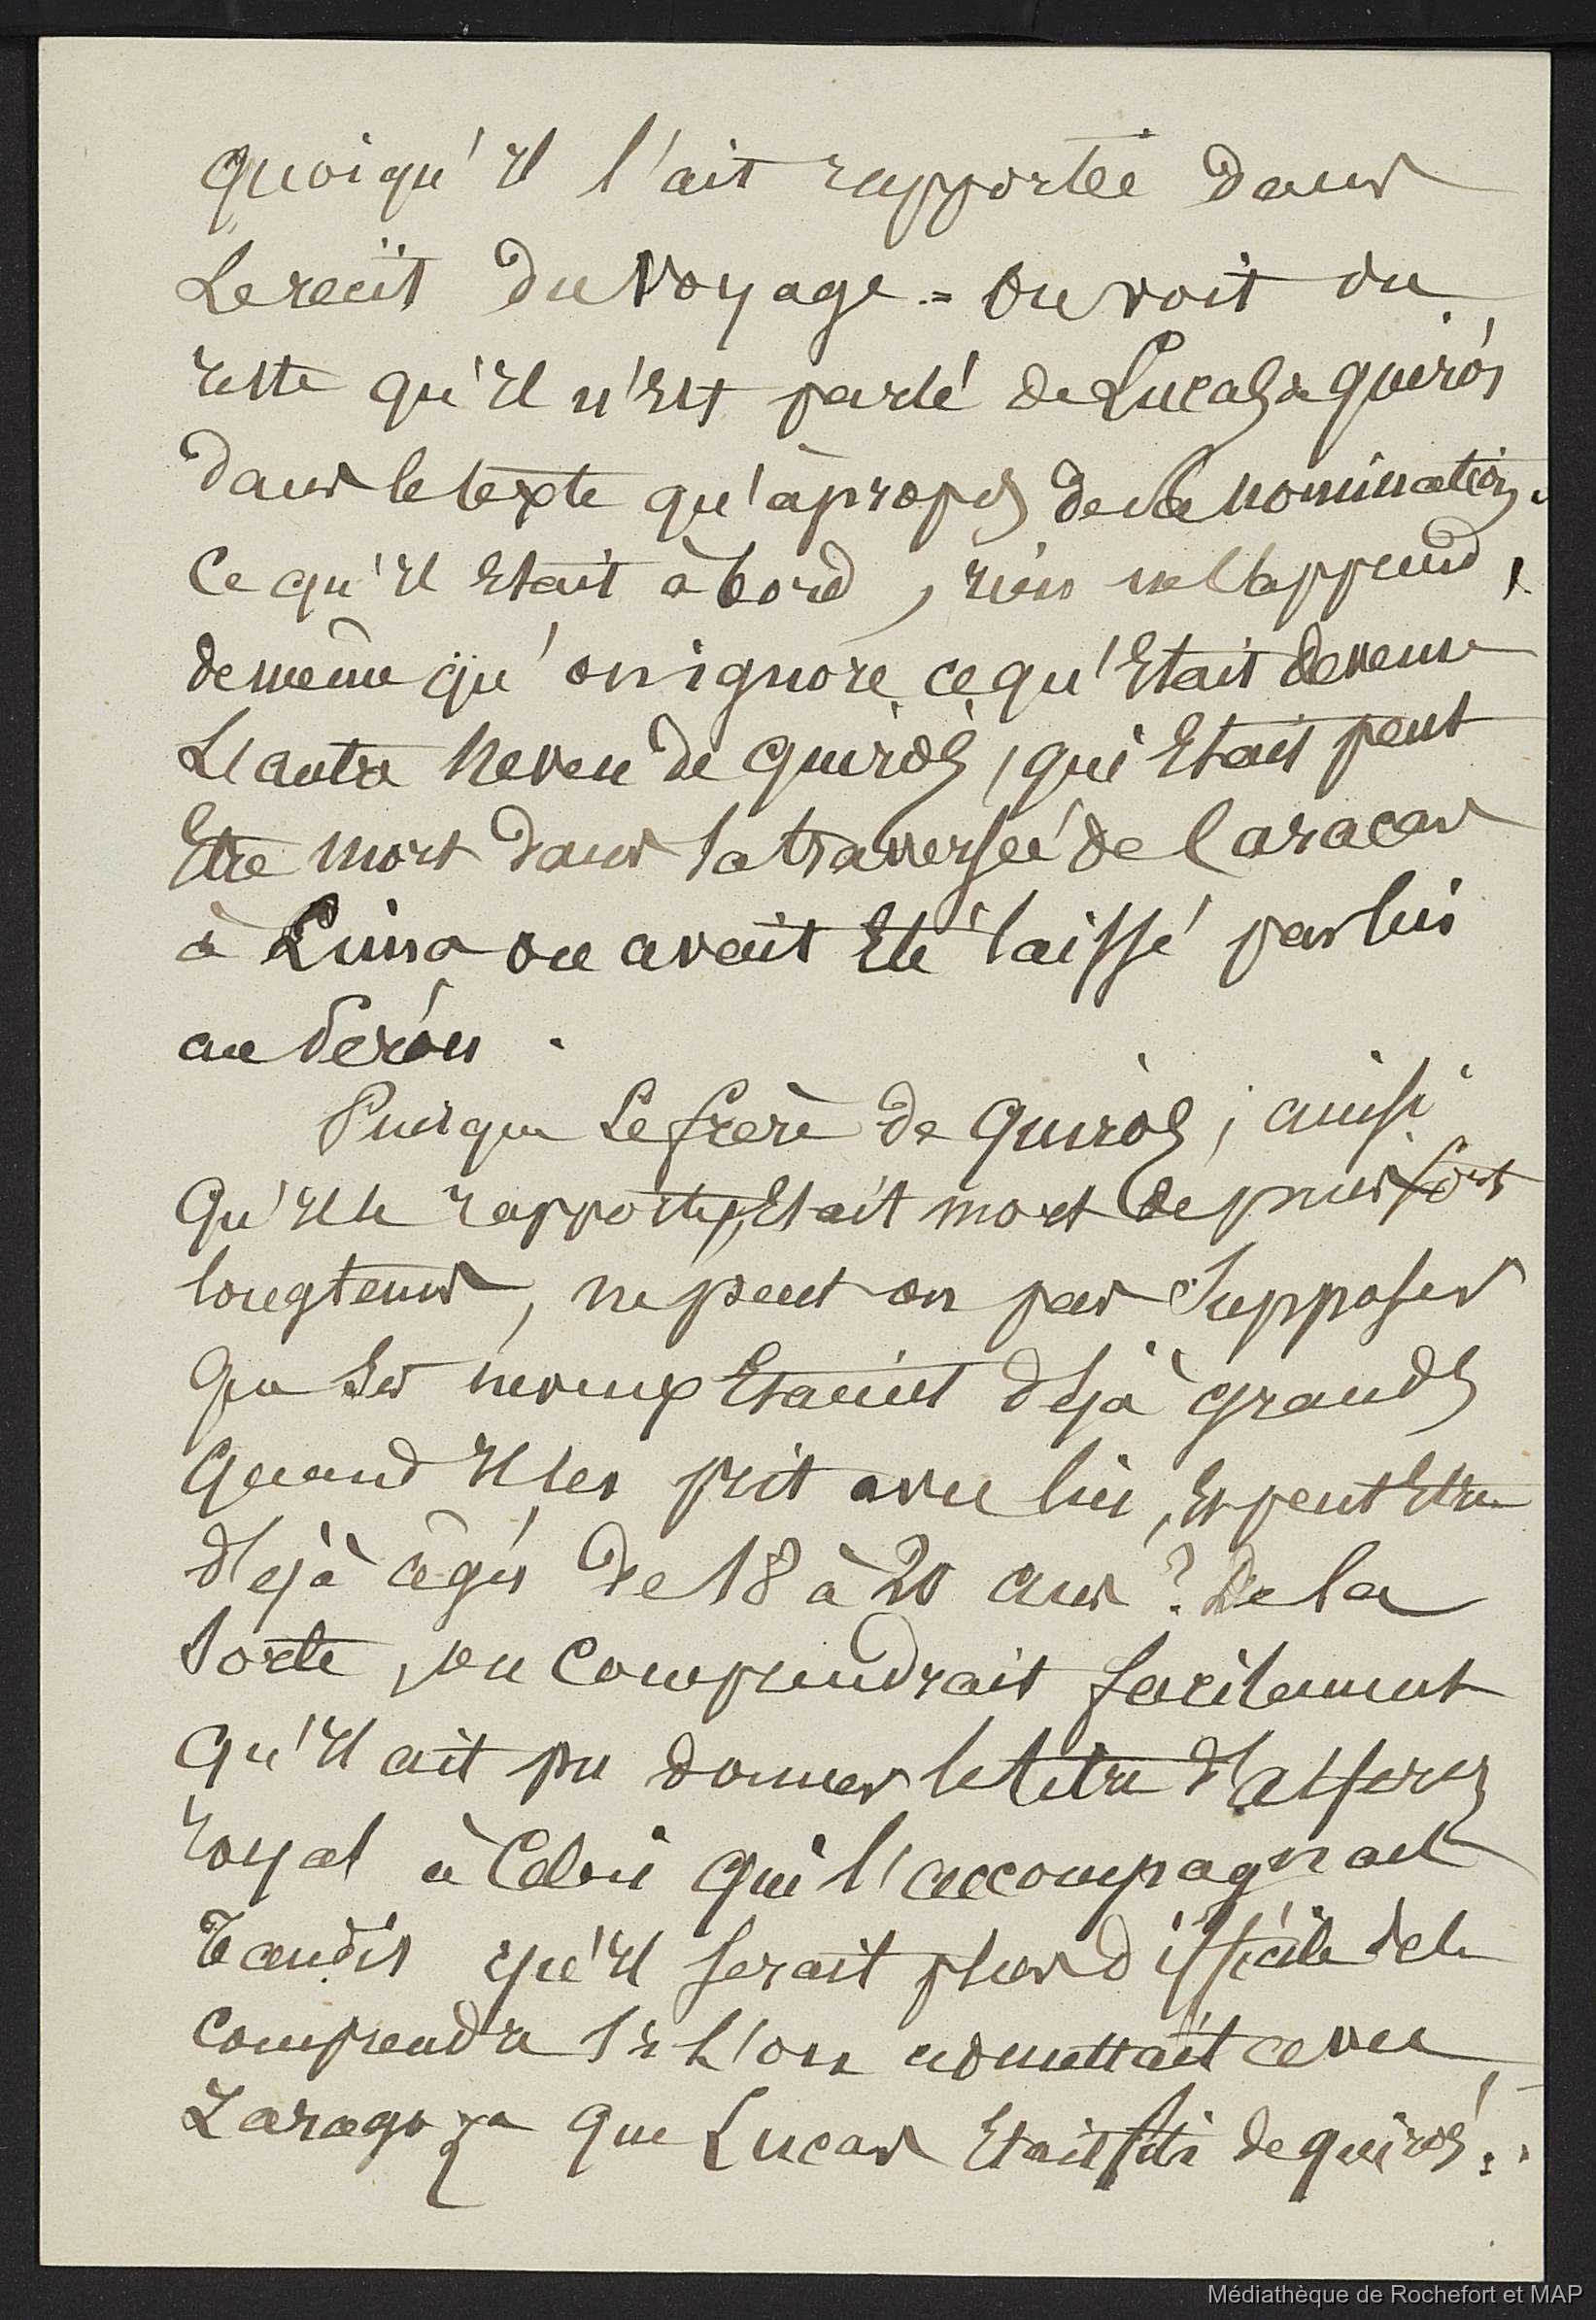 quoiqu'il l'ait rapportée dans
Le recit du Voyage = On voit du
reste qu'il n'est parlé de Lucas de quirós
dans le texte qu'à propos de sa nomination.
Ce qu'il Etait à bord, rien ne l'apprend,
de même qu'on ignore ce qu'Etait devenu
L'autre Neveu de quiros, qui Etait peut
Etre mort dans la traversée de Caracas
à Lima ou avait Eté laissé par lui
au Pérou.
Puisque Le frère de quiros, ainsi
Qu'il le rapporte, Etait mort depuis fort
longtems, ne peut on pas Supposer
que Ses neveux Etaient déjà grands
quand Il les prit avec lui, Et peut Etre
déjà âgés de 18 à 20 ans? De la
Sorte, on Comprendrait facilement
qu'il ait pu donner le titre d'alferez
royal à Celui qui l'accompagnait
tandis qu'il serait plus difficile de le
comprendre Si L'on admettait avec
Zaragoza que Lucas Etait fils de quirós.
Médiathèque de Rochefort et MAP